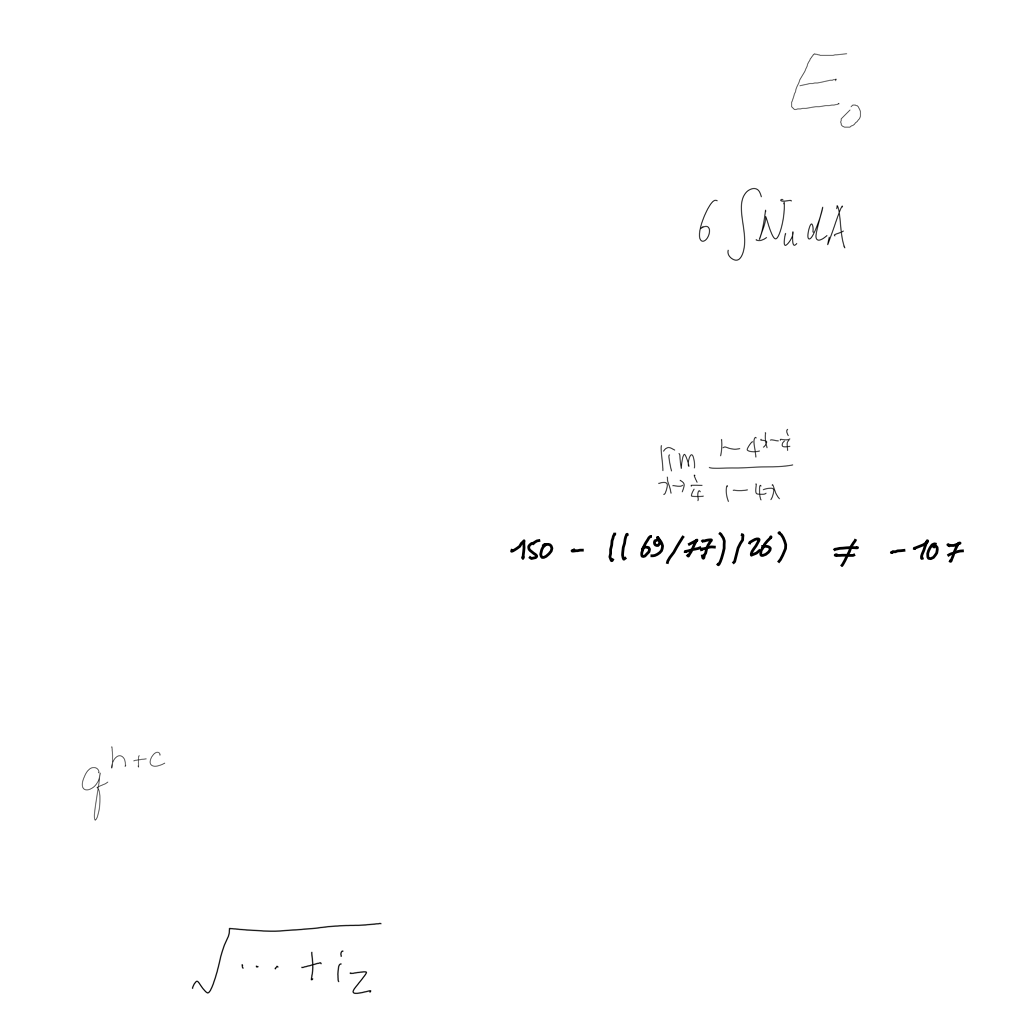 E_0
6 ∫ N_u dA
lim_{x→1/4} \frac{1-4^{x-1/4}}{1-4x}
150 - ((69/77)/26) ≠ -107
q^{h+c}
√(⋯ + i_z)